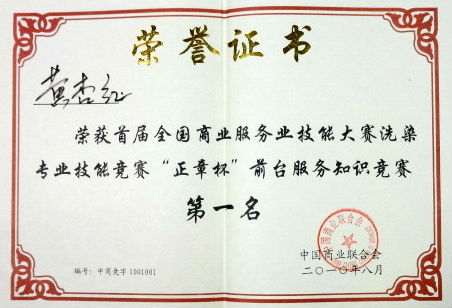 荣誉证书
黄杏红
荣获首届全国商业服务业技能大赛洗染
专业技能竞赛“正章杯”前台服务知识竞赛
第一名
中国商业联合会
中国商业联合会
二〇一〇年八月
编号：中商竞字1001001